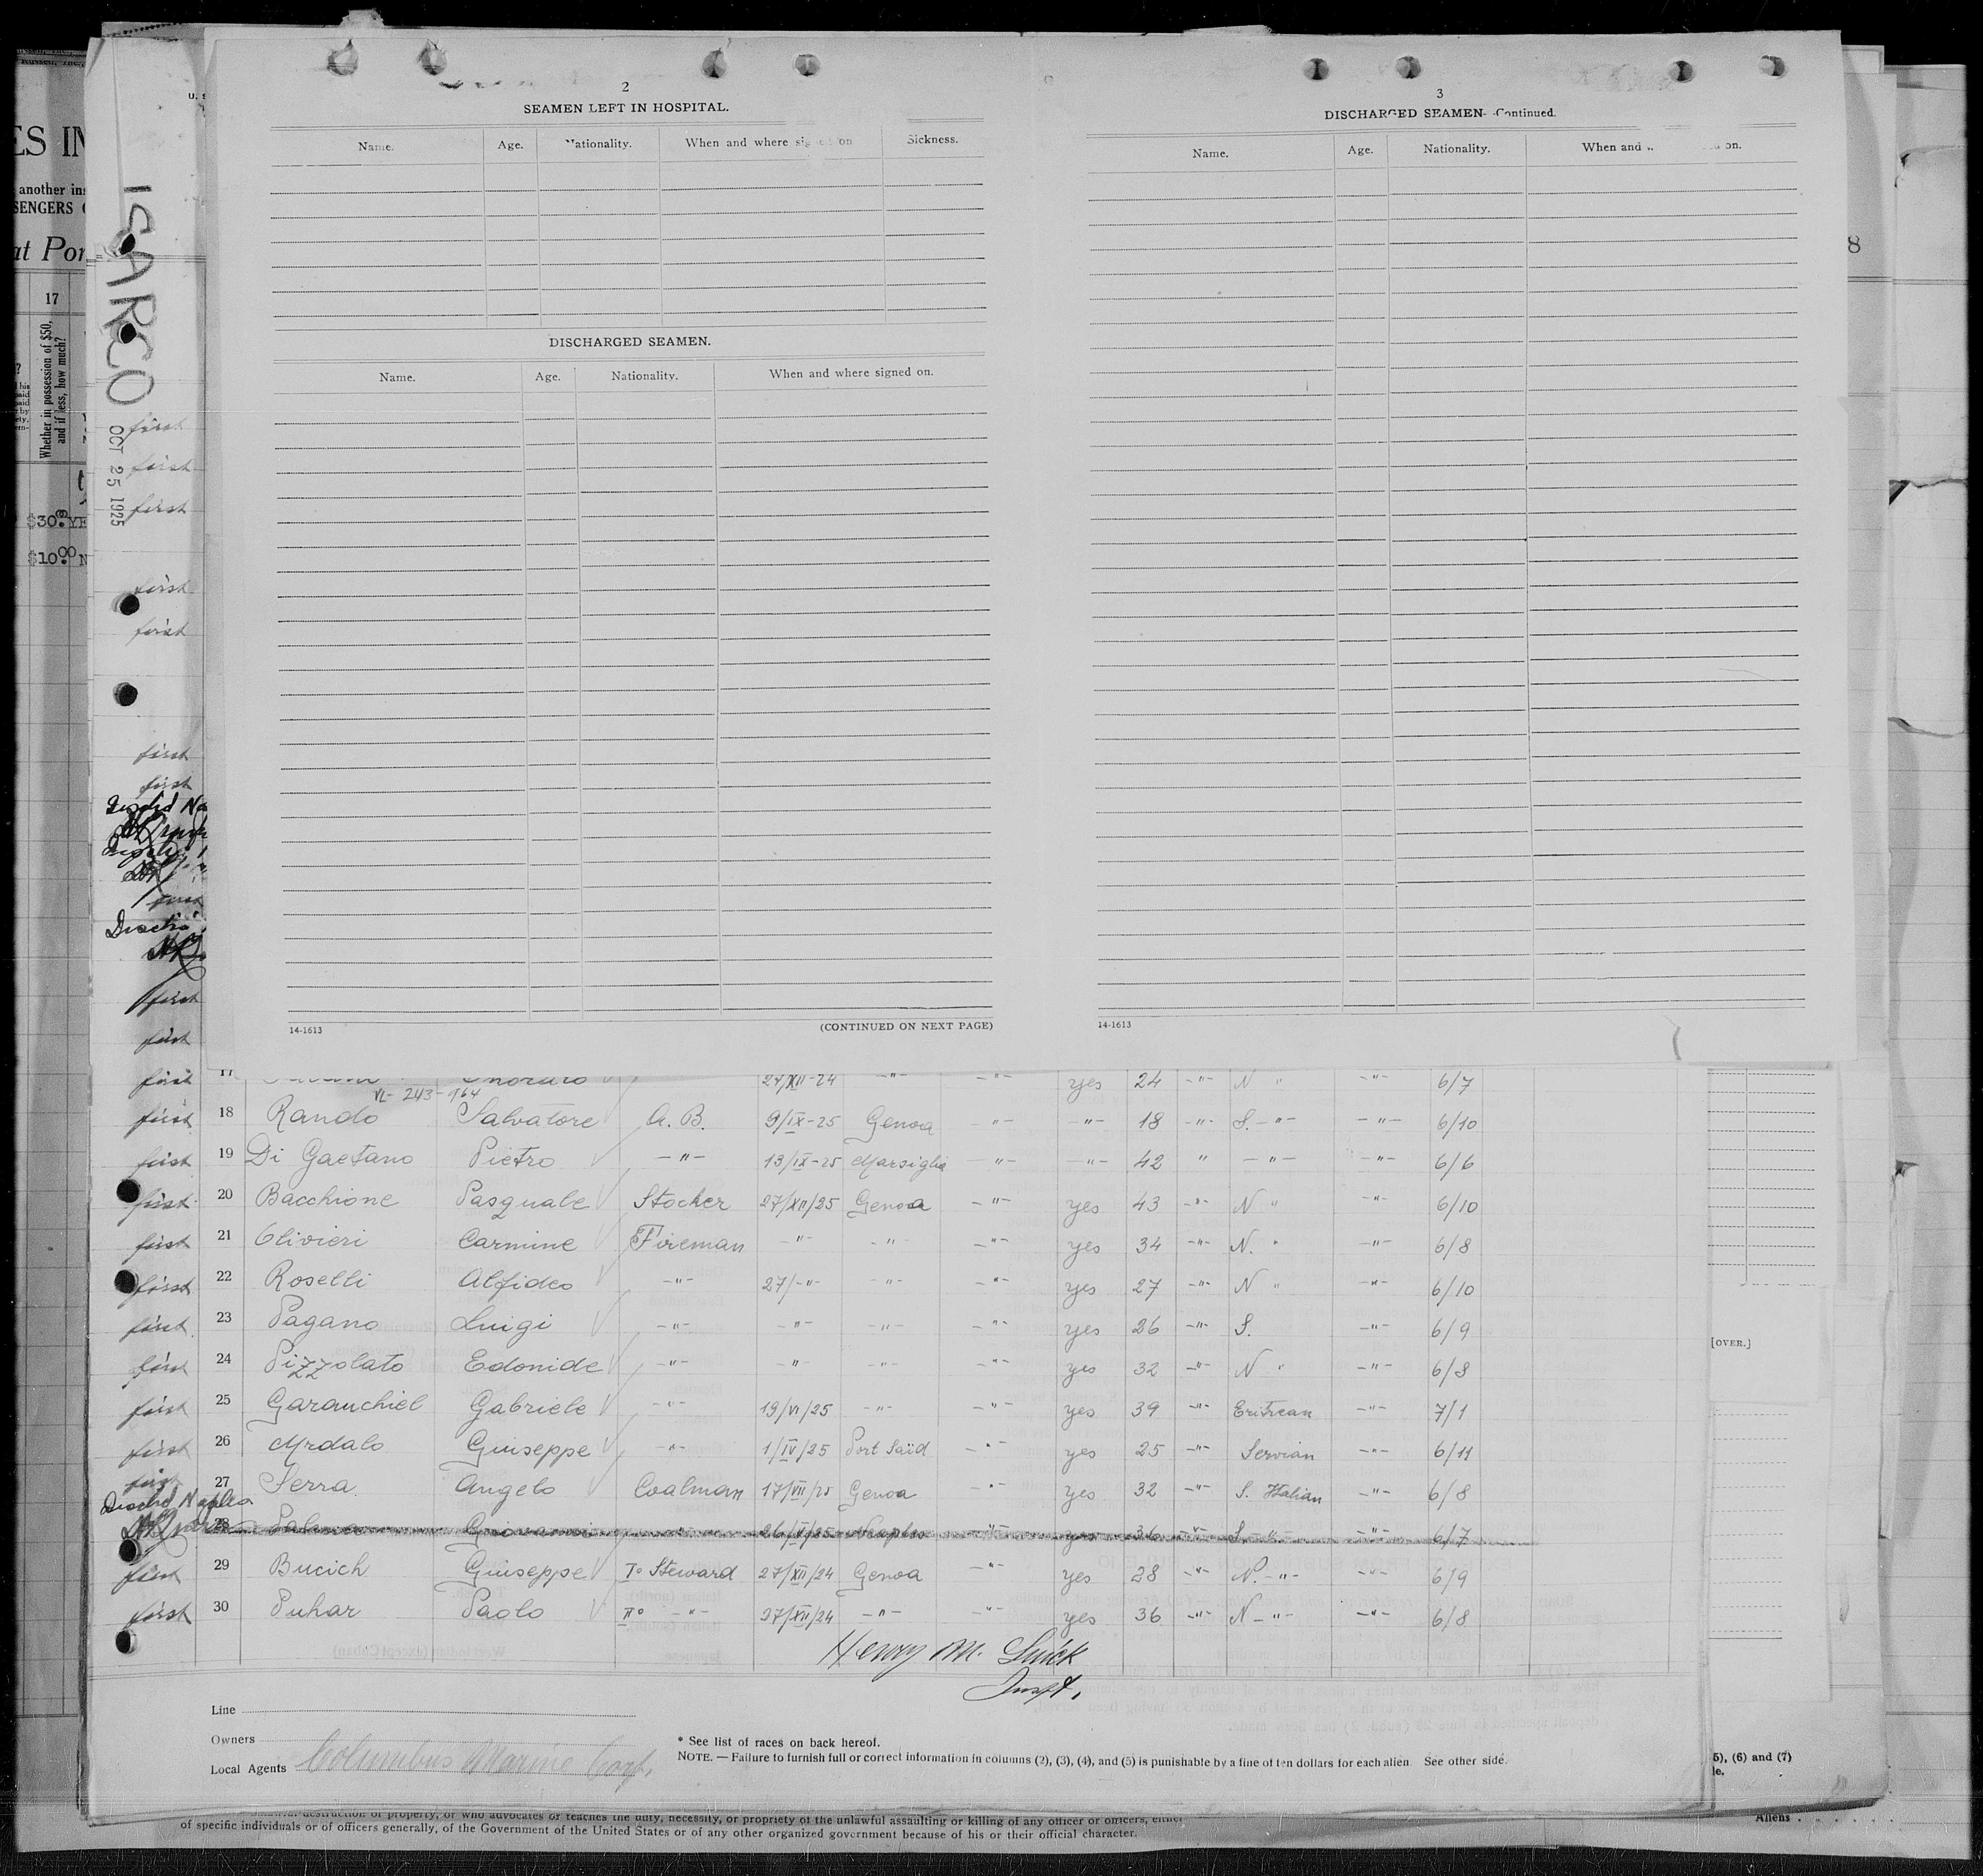 2
SEAMEN LEFT IN HOSPITAL.
Name. Age. Nationality. When and where signed on Sickness.
DISCHARGED SEAMEN.
Name. Age. Nationality. When and where signed on.
14-1613 (CONTINUED ON NEXT PAGE)
3
DISCHARGED SEAMEN--Continued.
Name. Age. Nationality. When and on.
14-1613
ES IN
another ins
SENGERS
at Por
17
Whether in possession of $50,
and if less, how much?
$30.
$10.00 N
ISARCO
OCT 25 1925
first
first
first
first
first
first
first
first
first
first
first 17 27/XII-24 -"- -"- yes 24 -"- N " -"- 6/7
VL-243-964
first 18 Rando Salvatore A. B. 9/IX-25 Genoa -"- -"- 18 -"- S. -"- -"- 6/10
first 19 Di Gaetano Pietro -"- 13/IX-25 Marsiglia -"- -"- 42 " -"- -"- 6/6
first 20 Bacchione Pasquale Stocker 27/XII/25 Genoa -"- yes 43 -"- N " -"- 6/10
first 21 Olivieri Carmine Fireman -"- -"- -"- yes 34 -"- N. " -"- 6/8
first 22 Roselli Alfideo -"- 27/-"- -"- -"- yes 27 -"- N " -"- 6/10
first 23 Pagano Luigi -"- -"- -"- -"- yes 26 -"- S. -"- 6/9
first 24 Pizzolato Edonide -"- -"- -"- -"- yes 32 -"- N " -"- 6/8
first 25 Garanchiel Gabriele -"- 19/VI/25 -"- -"- yes 39 -"- Eritrean -"- 7/1
first 26 Mrdalo Giuseppe -"- 1/IV/25 Port Saïd -"- yes 25 -"- Servian -"- 6/11
first 27 Serra Angelo Coalman 17/VII/25 Genoa -"- yes 32 -"- S. Italian -"- 6/8
Dischd Naples
28 Giovanni -"- 26/V/25 Neaples -"- yes 36 -"- S. -"- -"- 6/7
first 29 Bucich Giuseppe I° Steward 27/XII/24 Genoa -"- yes 28 -"- N. -"- -"- 6/9
first 30 Puhar Paolo II° -"- 27/XII/24 -"- -"- yes 36 -"- N -"- -"- 6/8
Henry M. Luick
Inspt.
Line
Owners
Local Agents Columbus Marine Corp.
* See list of races on back hereof.
NOTE.—Failure to furnish full or correct information in columns (2), (3), (4), and (5) is punishable by a fine of ten dollars for each alien. See other side.
[OVER.]
5), (6) and (7)
le.
8
destruction of property, or who advocates or teaches the duty, necessity, or propriety of the unlawful assaulting or killing of any officer or officers, either
of specific individuals or of officers generally, of the Government of the United States or of any other organized government because of his or their official character.
Aliens